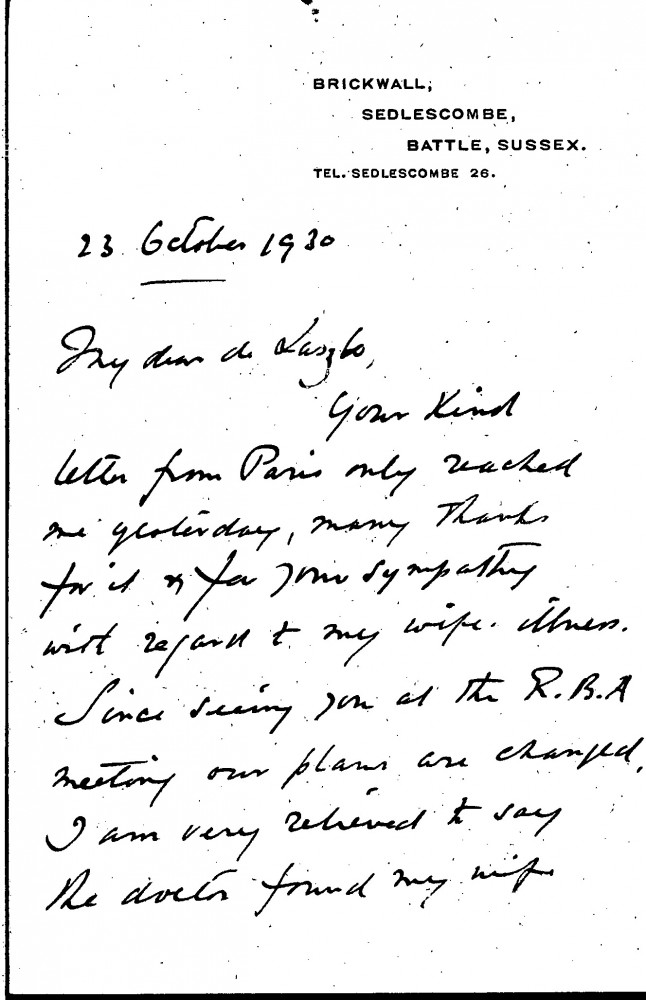 BRICKWALL,
SEDLESCOMBE,
BATTLE, SUSSEX.
TEL. SEDLESCOMBE 26.
23 October 1930
My dear de Laszlo,
Your kind
letter from Paris only reached
me yesterday, many thanks
for it & for your sympathy
with regard to my wife's illness.
Since seeing you at the R.B.A
meeting our plans are changed,
I am very relieved to say
the doctor found my wife